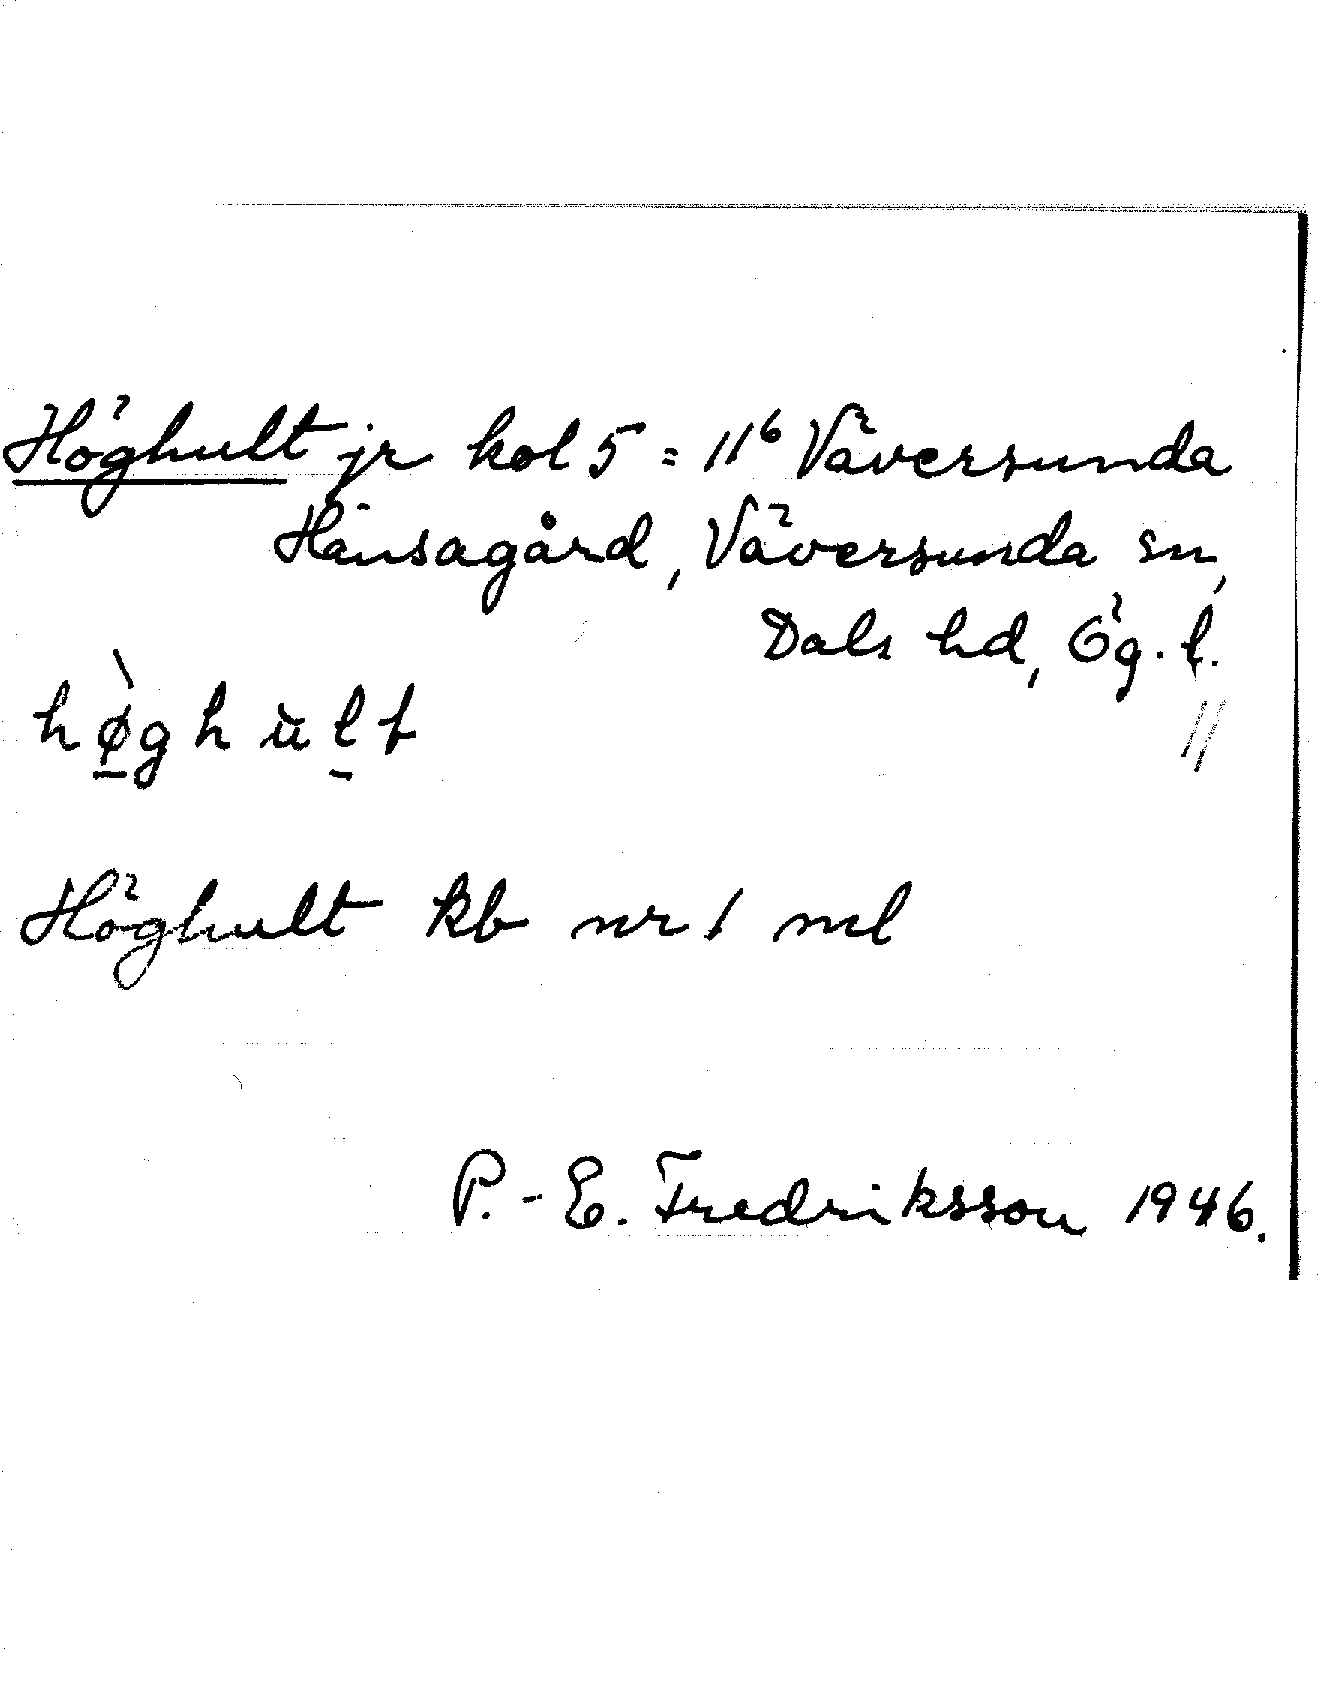 Höghult jr kol 5 = 11⁶ Väversunda
Hansagård, Väversunda sn,
Dals hd, Ög. l.
hø̀ghùlt
Höghult kb nr 1 ml
P.-E. Fredriksson 1946.